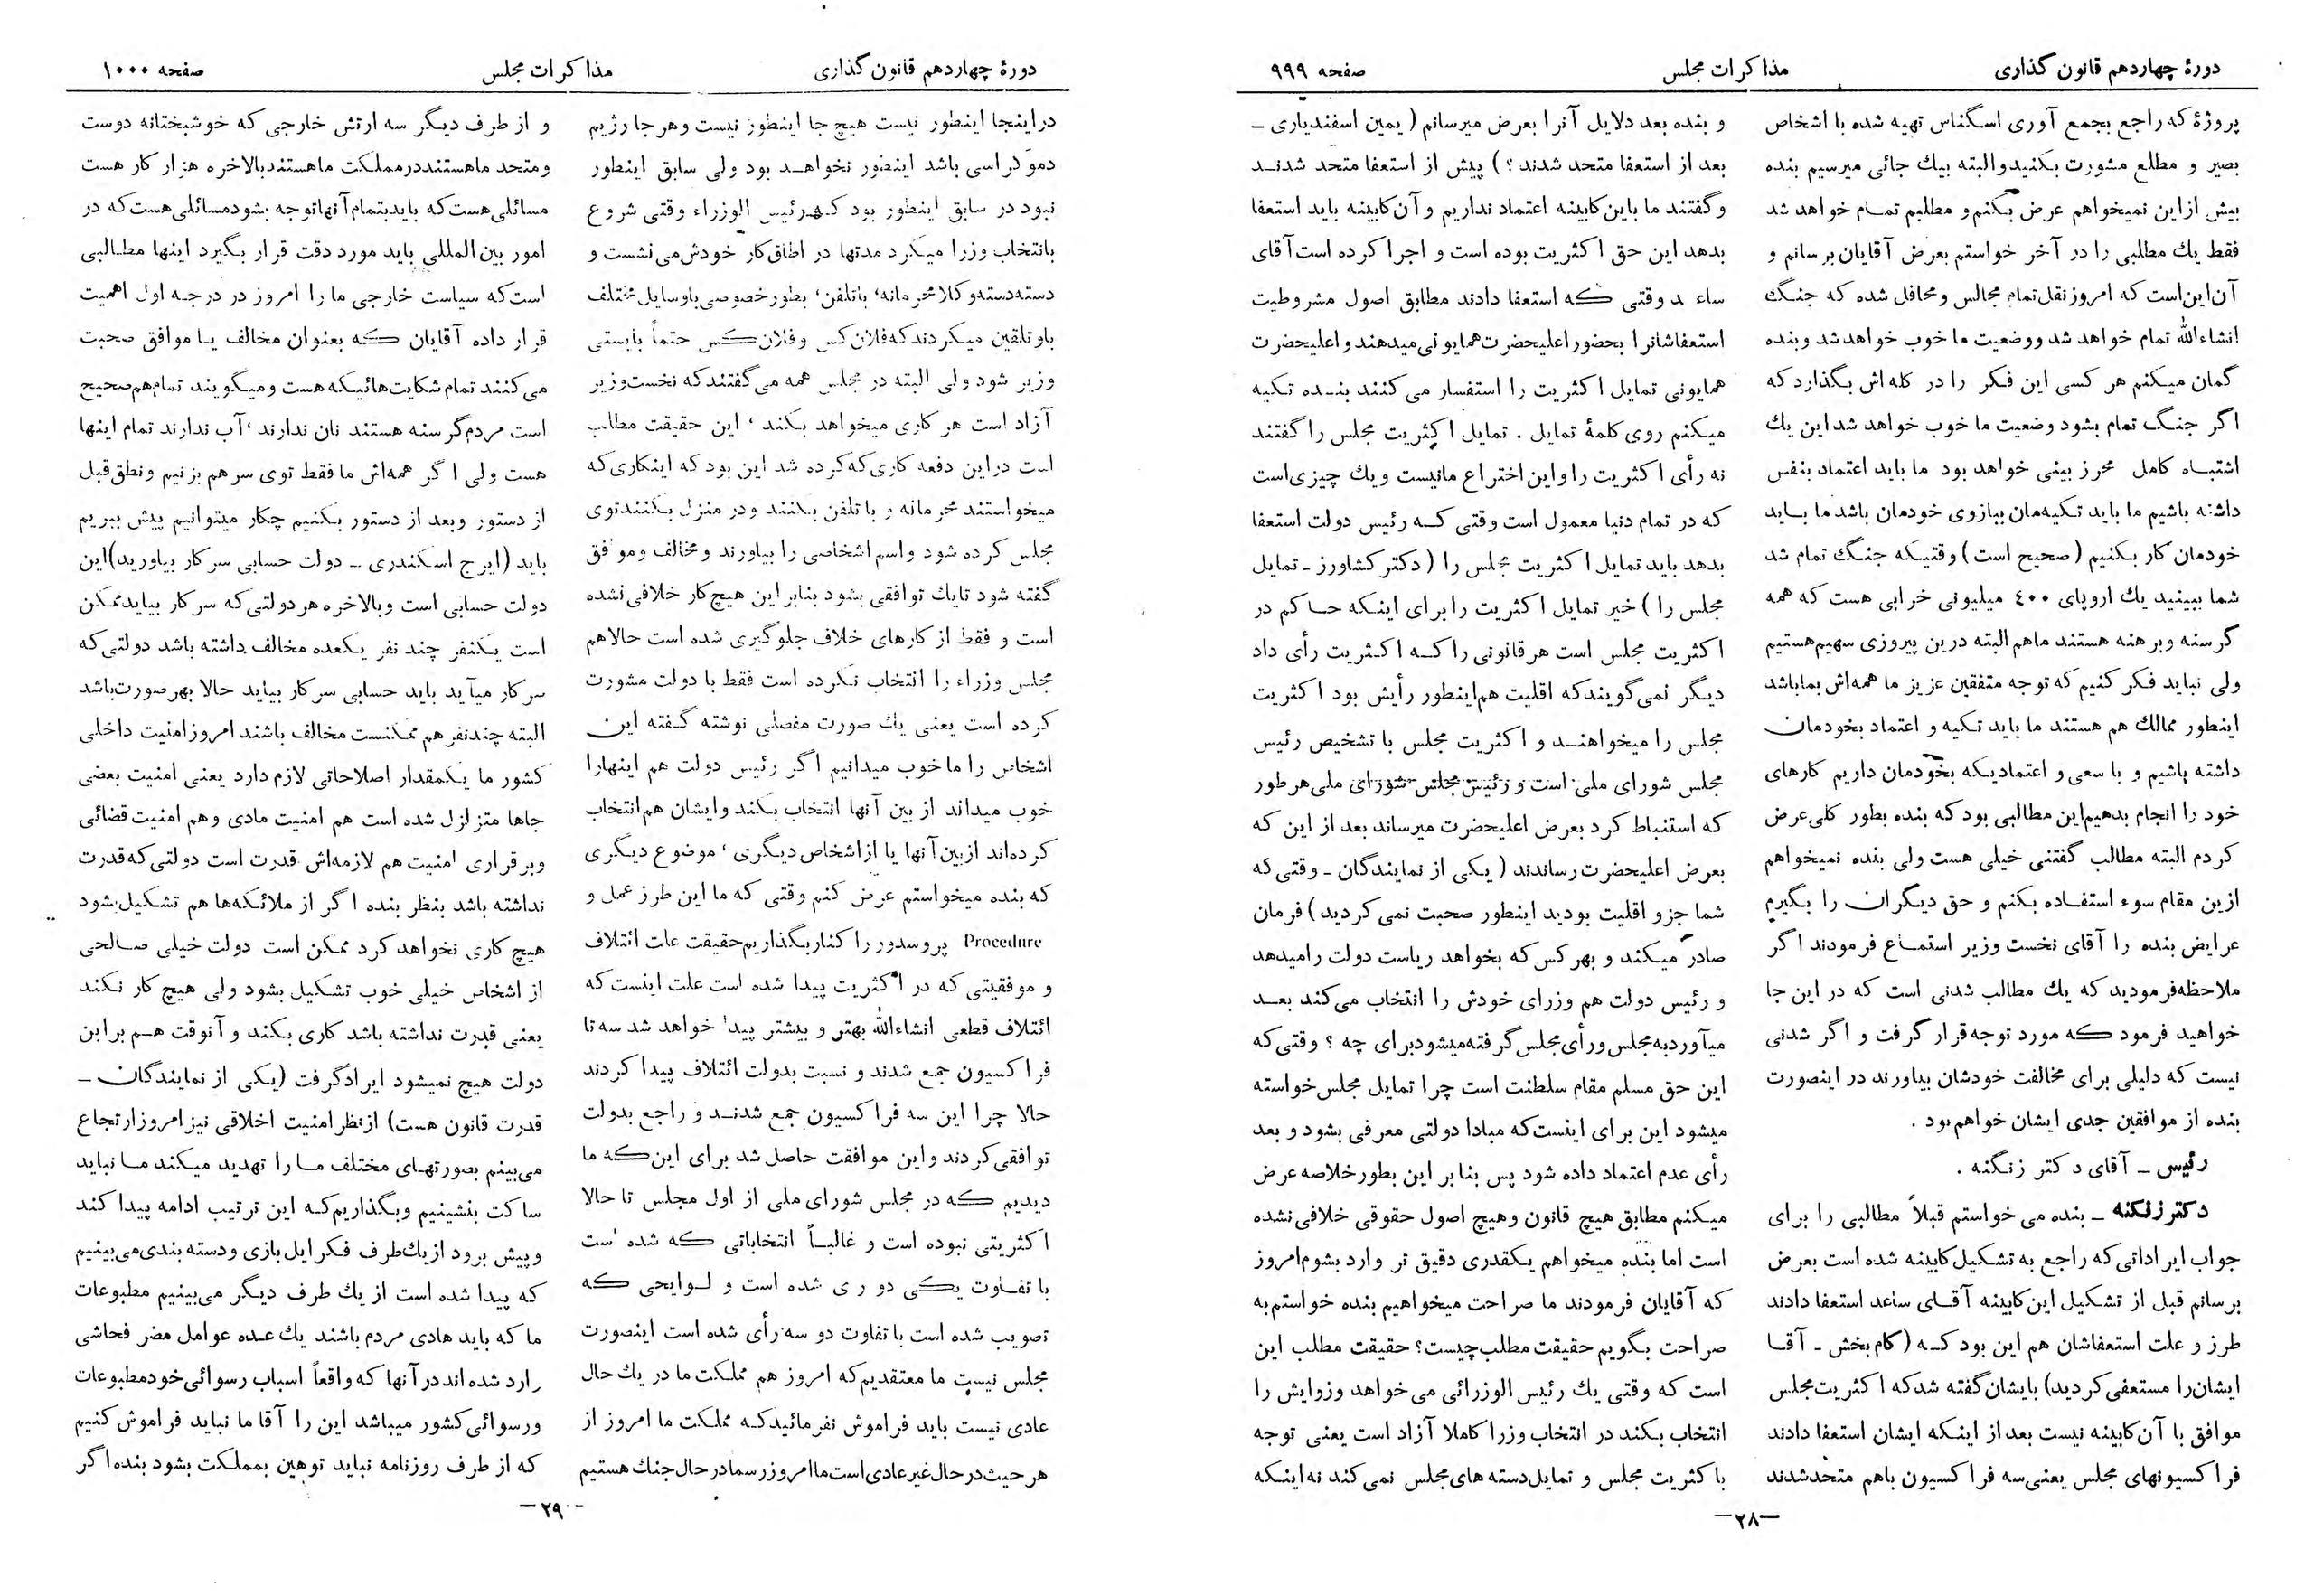 دورهٔ چهاردهم قانون گذاری
مذاکرات مجلس
صفحه ۹۹۹
پروژهٔ که راجع بجمع آوری اسکناس تهیه شده با اشخاص
بصیر و مطلع مشورت بکنید والبته بیك جائی میرسیم بنده
بیش ازاین نمیخواهم عرض بکنم و مطلبم تمام خواهد شد
فقط یك مطلبی را در آخر خواستم بعرض آقایان برسانم و
آن این است که امروز نقل تمام مجالس ومحافل شده که جنگ
انشاءالله تمام خواهد شد ووضعیت ما خوب خواهد شد وبنده
گمان میکنم هر کسی این فکر را در کله اش بگذارد که
اگر جنگ تمام بشود وضعیت ما خوب خواهد شد این یك
اشتباه کامل محرز بینی خواهد بود ما باید اعتماد بنفس
داشته باشیم ما باید تکیه مان ببازوی خودمان باشد ما باید
خودمان کار بکنیم (صحیح است) وقتیکه جنگ تمام شد
شما ببینید یك اروپای ٤۰۰ میلیونی خرابی هست که همه
گرسنه وبرهنه هستند ماهم البته درین پیروزی سهیم هستیم
ولی نباید فکر کنیم که توجه متفقین عزیز ما همه اش بما باشد
اینطور ممالك هم هستند ما باید تکیه و اعتماد بخودمان
داشته باشیم و با سعی و اعتمادیکه بخودمان داریم کارهای
خود را انجام بدهیم این مطالبی بود که بنده بطور کلی عرض
کردم البته مطالب گفتنی خیلی هست ولی بنده نمیخواهم
ازین مقام سوء استفاده بکنم و حق دیگران را بگیرم
عرایض بنده را آقای نخست وزیر استماع فرمودند اگر
ملاحظه فرمودید که یك مطالب شدنی است که در این جا
خواهید فرمود که مورد توجه قرار گرفت و اگر شدنی
نیست که دلیلی برای مخالفت خودشان بیاورند در اینصورت
بنده از موافقین جدی ایشان خواهم بود .
رئیس ـ آقای دکتر زنگنه .
دکتر زنگنه ـ بنده می خواستم قبلاً مطالبی را برای
جواب ایراداتی که راجع به تشکیل کابینه شده است بعرض
برسانم قبل از تشکیل این کابینه آقای ساعد استعفا دادند
طرز و علت استعفاشان هم این بود که (کام بخش ـ آقا
ایشان را مستعفی کردید) بایشان گفته شد که اکثریت مجلس
موافق با آن کابینه نیست بعد از اینکه ایشان استعفا دادند
فراکسیونهای مجلس یعنی سه فراکسیون باهم متحد شدند
و بنده بعد دلایل آنرا بعرض میرسانم (یمین اسفندیاری ـ
بعد از استعفا متحد شدند ؟) پیش از استعفا متحد شدند
وگفتند ما باین کابینه اعتماد نداریم وآن کابینه باید استعفا
بدهد این حق اکثریت بوده است و اجرا کرده است آقای
ساعد وقتی که استعفا دادند مطابق اصول مشروطیت
استعفاشانرا بحضور اعلیحضرت همایونی میدهند و اعلیحضرت
همایونی تمایل اکثریت را استفسار می کنند بنده تکیه
میکنم روی کلمهٔ تمایل . تمایل اکثریت مجلس را گفتند
نه رأی اکثریت را واین اختراع مانیست ویك چیزی است
که در تمام دنیا معمول است وقتی که رئیس دولت استعفا
بدهد باید تمایل اکثریت مجلس را (دکتر کشاورز ـ تمایل
مجلس را) خیر تمایل اکثریت را برای اینکه حاکم در
اکثریت مجلس است هر قانونی را که اکثریت رأی داد
دیگر نمی گویند که اقلیت هم اینطور رأیش بود اکثریت
مجلس را میخواهند و اکثریت مجلس با تشخیص رئیس
مجلس شورای ملی است و رئیس مجلس شورای ملی هر طور
که استنباط کرد بعرض اعلیحضرت میرساند بعد از این که
بعرض اعلیحضرت رساندند (یکی از نمایندگان ـ وقتی که
شما جزو اقلیت بودید اینطور صحبت نمی کردید) فرمان
صادر میکند و بهر کس که بخواهد ریاست دولت را میدهد
و رئیس دولت هم وزرای خودش را انتخاب می کند بعد
میآورد به مجلس ورأی مجلس گرفته میشود برای چه ؟ وقتی که
این حق مسلم مقام سلطنت است چرا تمایل مجلس خواسته
میشود این برای اینست که مبادا دولتی معرفی بشود و بعد
رأی عدم اعتماد داده شود پس بنابر این بطور خلاصه عرض
میکنم مطابق هیچ قانون وهیچ اصول حقوقی خلافی نشده
است اما بنده میخواهم یکقدری دقیق تر وارد بشوم امروز
که آقایان فرمودند ما صراحت میخواهیم بنده خواستم به
صراحت بگویم حقیقت مطلب چیست؟ حقیقت مطلب این
است که وقتی یك رئیس الوزرائی می خواهد وزرایش را
انتخاب بکند در انتخاب وزرا کاملا آزاد است یعنی توجه
باکثریت مجلس و تمایل دسته های مجلس نمی کند نه اینکه
ـ۲۸ـ
دورهٔ چهاردهم قانون گذاری
مذاکرات مجلس
صفحه ۱۰۰۰
دراینجا اینطور نیست هیچ جا اینطور نیست وهر جا رژیم
دموکراسی باشد اینطور نخواهد بود ولی سابق اینطور
نبود در سابق اینطور بود که رئیس الوزراء وقتی شروع
بانتخاب وزرا میکرد مدتها در اطاق کار خودش می نشست و
دسته دسته وکلا محرمانه، باتلفن، بطور خصوصی باوسایل مختلف
باو تلقین میکردند که فلان کس وفلان کس حتماً بایستی
وزیر شود ولی البته در مجلس همه می گفتند که نخست وزیر
آزاد است هر کاری میخواهد بکند ، این حقیقت مطلب
است دراین دفعه کاری که کرده شد این بود که اینکاری که
میخواستند محرمانه و با تلفن بکنند ودر منزل بکنند توی
مجلس کرده شود واسم اشخاصی را بیاورند ومخالف وموافق
گفته شود تایك توافقی بشود بنابر این هیچ کار خلافی نشده
است و فقط از کارهای خلاف جلوگیری شده است حالاهم
مجلس وزراء را انتخاب نکرده است فقط با دولت مشورت
کرده است یعنی یك صورت مفصلی نوشته گفته این
اشخاص را ما خوب میدانیم اگر رئیس دولت هم اینهارا
خوب میداند از بین آنها انتخاب بکند وایشان هم انتخاب
کرده‌اند ازبین آنها یا از اشخاص دیگری ، موضوع دیگری
که بنده میخواستم عرض کنم وقتی که ما این طرز عمل و
Procedure پروسدور را کنار بگذاریم حقیقت علت ائتلاف
و موفقیتی که در اکثریت پیدا شده است علت اینست که
ائتلاف قطعی انشاءالله بهتر و بیشتر پیدا خواهد شد سه تا
فراکسیون جمع شدند و نسبت بدولت ائتلاف پیدا کردند
حالا چرا این سه فراکسیون جمع شدند و راجع بدولت
توافقی کردند واین موافقت حاصل شد برای این که ما
دیدیم که در مجلس شورای ملی از اول مجلس تا حالا
اکثریتی نبوده است و غالباً انتخاباتی که شده است
با تفاوت یکی دو ری شده است و لوایحی که
تصویب شده است با تفاوت دو سه رأی شده است اینصورت
مجلس نیست ما معتقدیم که امروز هم مملکت ما در یك حال
عادی نیست باید فراموش نفرمائید که مملکت ما امروز از
هر حیث در حال غیر عادی است ما امروز رسما در حال جنك هستیم
و از طرف دیگر سه ارتش خارجی که خوشبختانه دوست
ومتحد ما هستند در مملکت ما هستند بالاخره هزار کار هست
مسائلی هست که باید بتمام آنها توجه بشود مسائلی هست که در
امور بین المللی باید مورد دقت قرار بگیرد اینها مطالبی
است که سیاست خارجی ما را امروز در درجه اول اهمیت
قرار داده آقایان که بعنوان مخالف یا موافق صحبت
می کنند تمام شکایت هائیکه هست ومیگویند تمام هم صحیح
است مردم گرسنه هستند نان ندارند ، آب ندارند تمام اینها
هست ولی اگر همه اش ما فقط توی سر هم بزنیم ونطق قبل
از دستور وبعد از دستور بکنیم چکار میتوانیم پیش ببریم
باید (ایرج اسکندری ـ دولت حسابی سر کار بیاورید) این
دولت حسابی است وبالاخره هر دولتی که سر کار بیاید ممکن
است یکنفر چند نفر یکعده مخالف داشته باشد دولتی که
سر کار میآید باید حسابی سر کار بیاید حالا بهر صورت باشد
البته چند نفر هم ممکنست مخالف باشند امروز امنیت داخلی
کشور ما یکمقدار اصلاحاتی لازم دارد یعنی امنیت بعضی
جاها متزلزل شده است هم امنیت مادی وهم امنیت قضائی
وبرقراری امنیت هم لازمه اش قدرت است دولتی که قدرت
نداشته باشد بنظر بنده اگر از ملائکه ها هم تشکیل بشود
هیچ کاری نخواهد کرد ممکن است دولت خیلی صالحی
از اشخاص خیلی خوب تشکیل بشود ولی هیچ کار نکند
یعنی قدرت نداشته باشد کاری بکند و آنوقت هم براین
دولت هیچ نمیشود ایراد گرفت (یکی از نمایندگان ـ
قدرت قانون هست) از نظر امنیت اخلاقی نیز امروز ارتجاع
می بینم بصورتهای مختلف ما را تهدید میکند ما نباید
ساکت بنشینیم وبگذاریم که این ترتیب ادامه پیدا کند
وپیش برود از یك طرف فکر ایل بازی و دسته بندی می بینیم
که پیدا شده است از یك طرف دیگر می بینیم مطبوعات
ما که باید هادی مردم باشند یك عده عوامل مضر فحاشی
وارد شده اند در آنها که واقعاً اسباب رسوائی خود مطبوعات
ورسوائی کشور میباشد این را آقا ما نباید فراموش کنیم
که از طرف روزنامه نباید توهین بمملکت بشود بنده اگر
ـ۲۹ـ